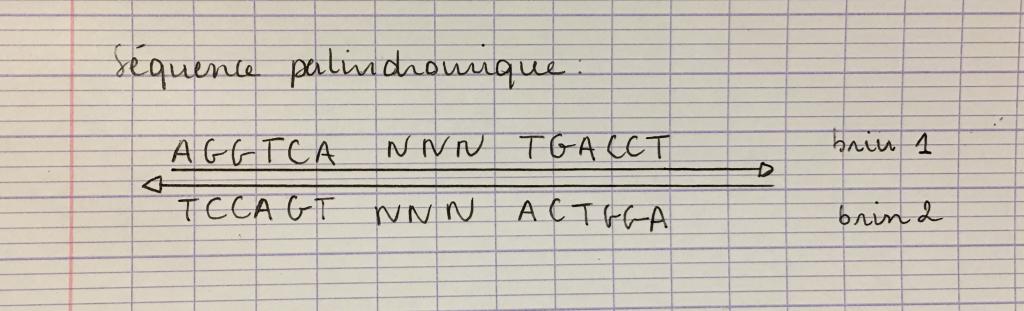 Séquence palindromique:
AGGTCA NNN TGACCT brin 1
TCCAGT NNN ACTGGA brin 2